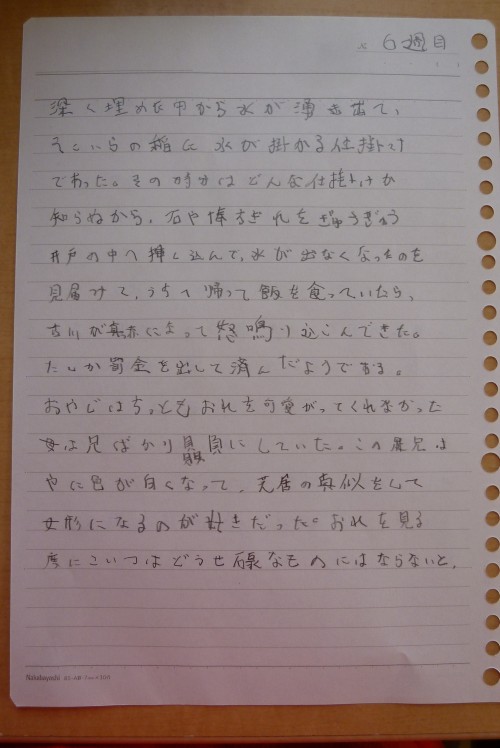 × 6週目
深く埋めた中から水が湧き出て、
そこいらの稲に水が掛かる仕掛け
であった。その時分はどんな仕掛けか
知らぬから、石や棒ちぎれをぎゅうぎゅう
井戸の中へ挿し込んで、水が出なくなったのを
見届けて、うちへ帰って飯を食っていたら、
古川が真赤になって怒鳴り込んできた。
たしか罰金を出して済んだようである。
おやじはちっともおれを可愛がってくれなかった
母は兄ばかり贔負にしていた。この兄は
やに色が白くなって、芝居の真似をして
女形になるのが好きだった。おれを見る
度にこいつはどうせ碌なものにはならないと、
Nakabayashi